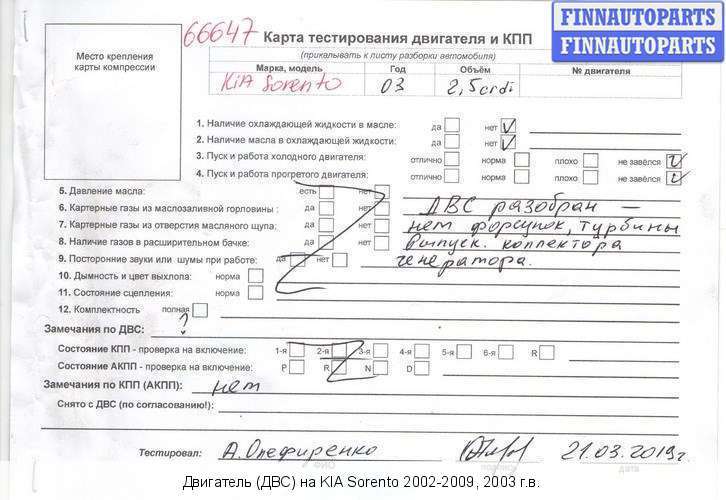 FINNAUTOPARTS
FINNAUTOPARTS
66647 Карта тестирования двигателя и КПП
(прикалывать к листу разборки автомобиля)
Место крепления
карты компрессии
Марка, модель Год Объём № двигателя
KiA Sorento 03 2,5crdi
1. Наличие охлаждающей жидкости в масле: да нет V
2. Наличие масла в охлаждающей жидкости: да нет V
3. Пуск и работа холодного двигателя: отлично норма плохо не завёлся V
4. Пуск и работа прогретого двигателя: отлично норма плохо не завёлся V
5. Давление масла: есть нет
6. Картерные газы из маслозаливной горловины : да нет
7. Картерные газы из отверстия масляного щупа: да нет
8. Наличие газов в расширительном бачке: да нет
9. Посторонние звуки или шумы при работе: да нет
10. Дымность и цвет выхлопа: норма
11. Состояние сцепления: норма
12. Комплектность полная
?
ДВС разобран —
нет форсунок, турбины
выпуск. коллектора
генератора.
Замечания по ДВС:
Состояние КПП - проверка на включение: 1-я 2-я 3-я 4-я 5-я 6-я R
Состояние АКПП - проверка на включение: P R N D
Замечания по КПП (АКПП): нет
Снято с ДВС (по согласованию!):
Тестировал: А. Олефиренко 21.03.2019г.
ФИО подпись дата
Двигатель (ДВС) на KIA Sorento 2002-2009, 2003 г.в.